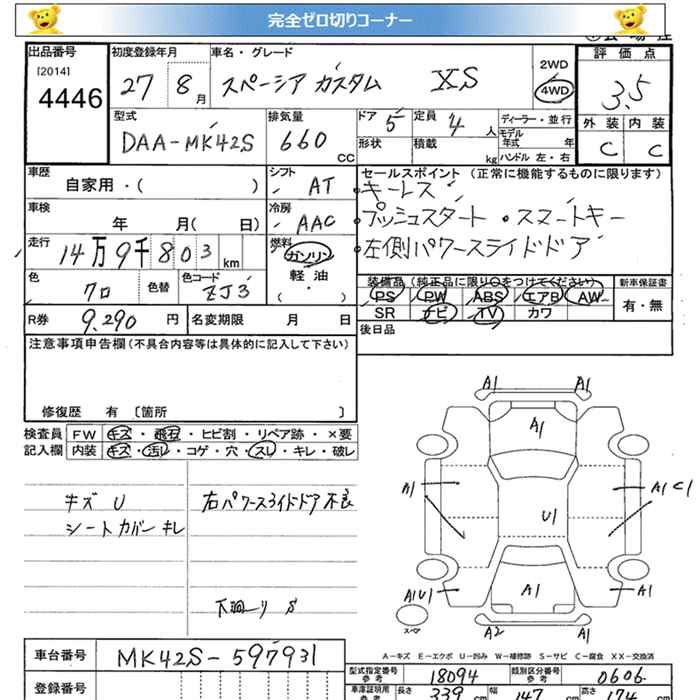 完全ゼロ切りコーナー
出品番号 [2014] 4446
初度登録年月 27 8 月
車名・グレード スペーシア カスタム XS
2WD 4WD
評価点 3.5
外装 内装 C C
型式 DAA-MK42S
排気量 660 CC
ドア 5 定員 4 人
形状 積載 kg
ディーラー・並行
モデル年式 年
ハンドル 左・右
車歴 自家用・( )
シフト AT
セールスポイント (正常に機能するものに限ります)
キーレス
プッシュスタート ・スマートキー
左側パワースライドドア
車検 年 月( 日)
冷房 AAC
走行 14万9千803 km
燃料 ガソリン 軽油 ( ・ )
色 クロ 色替 色コード ZJ3
装備品 (純正品に限り○をつけてください) 新車保証書
PS PW ABS エアB AW 有・無
SR ナビ TV カワ
R券 9,290 円 名変期限 月 日
後日品
注意事項申告欄(不具合内容等は具体的に記入して下さい)
修復歴 有 〔箇所 〕
検査員 FW キズ・飛石・ヒビ割・リペア跡・×要
記入欄 内装 キズ・汚レ・コゲ・穴・スレ・キレ・破レ
キズ U
シートカバーキレ
右パワースライドドア不良
下廻り S
A1 A1
A1
A1 A1 C1
U1
A1U1 A1 A1
スペア
A2 A1
A-キズ E-エクボ U-凹み W-補修跡 S-サビ C-腐食 XX-交換済
車台番号 MK42S-597931
登録番号
型式指定番号 参考 18094 類別区分番号 参考 0606
車庫証明用 参考 長さ 339 cm 幅 147 cm 高さ 174 cm